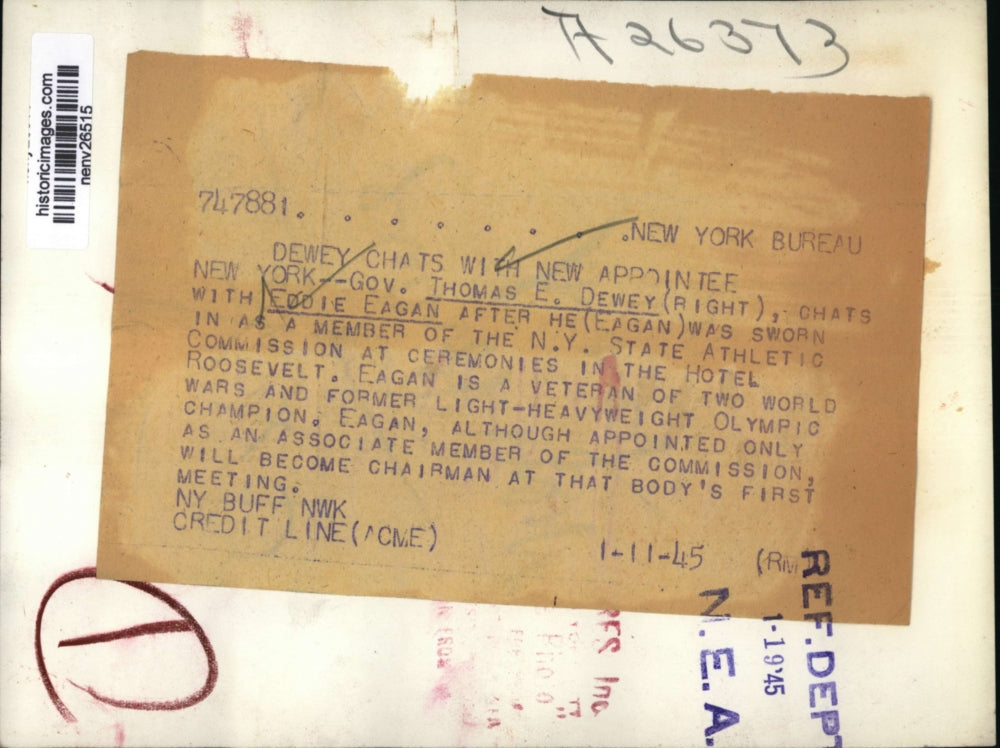 A 26373
historicimages.com
nenv26515
747881. . . . . . . .NEW YORK BUREAU
DEWEY CHATS WITH NEW APPOINTEE
NEW YORK--GOV. THOMAS E. DEWEY(RIGHT), CHATS
WITH EDDIE EAGAN AFTER HE(EAGAN)WAS SWORN
IN AS A MEMBER OF THE N.Y. STATE ATHLETIC
COMMISSION AT CEREMONIES IN THE HOTEL
ROOSEVELT. EAGAN IS A VETERAN OF TWO WORLD
WARS AND FORMER LIGHT-HEAVYWEIGHT OLYMPIC
CHAMPION. EAGAN, ALTHOUGH APPOINTED ONLY
AS AN ASSOCIATE MEMBER OF THE COMMISSION,
WILL BECOME CHAIRMAN AT THAT BODY'S FIRST
MEETING.
NY BUFF NWK
CREDIT LINE(ACME) 1-11-45 (RM
REF. DEPT
1-19 45
N.E.A.
Inc